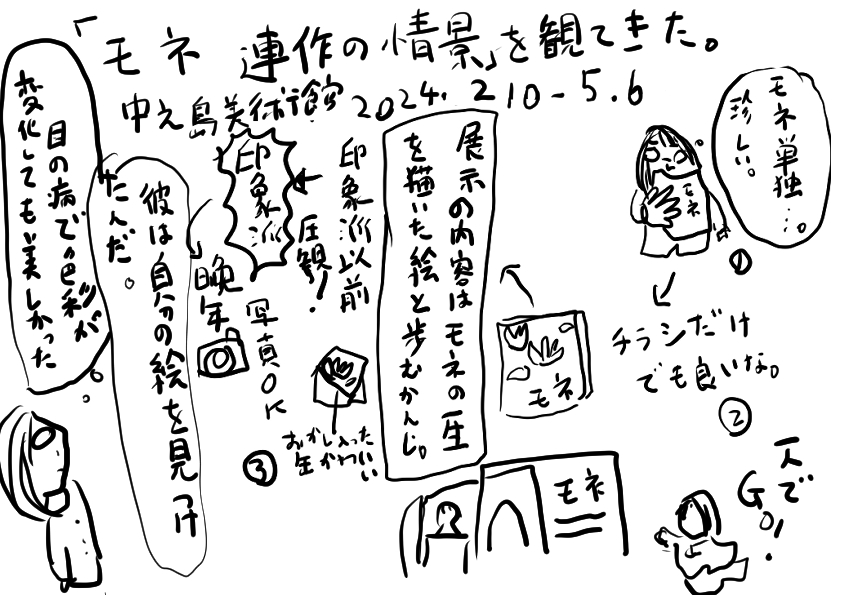 「モネ 連作の情景」を観てきた。
中之島美術館 2024. 2 10 - 5.6
モネ単独…。
珍しい。
モネ
①
チラシだけ
でも良いな。
②
一人で
GO!
モネ
モネ
展示の内容はモネの一生
を描いた絵と歩むかんじ。
印象派以前
圧観!
印象派
写真OK
晩年
おかし入った
缶かわいい
③
彼は自分の絵を見つけ
たんだ。
目の病で色彩が
変化しても美しかった